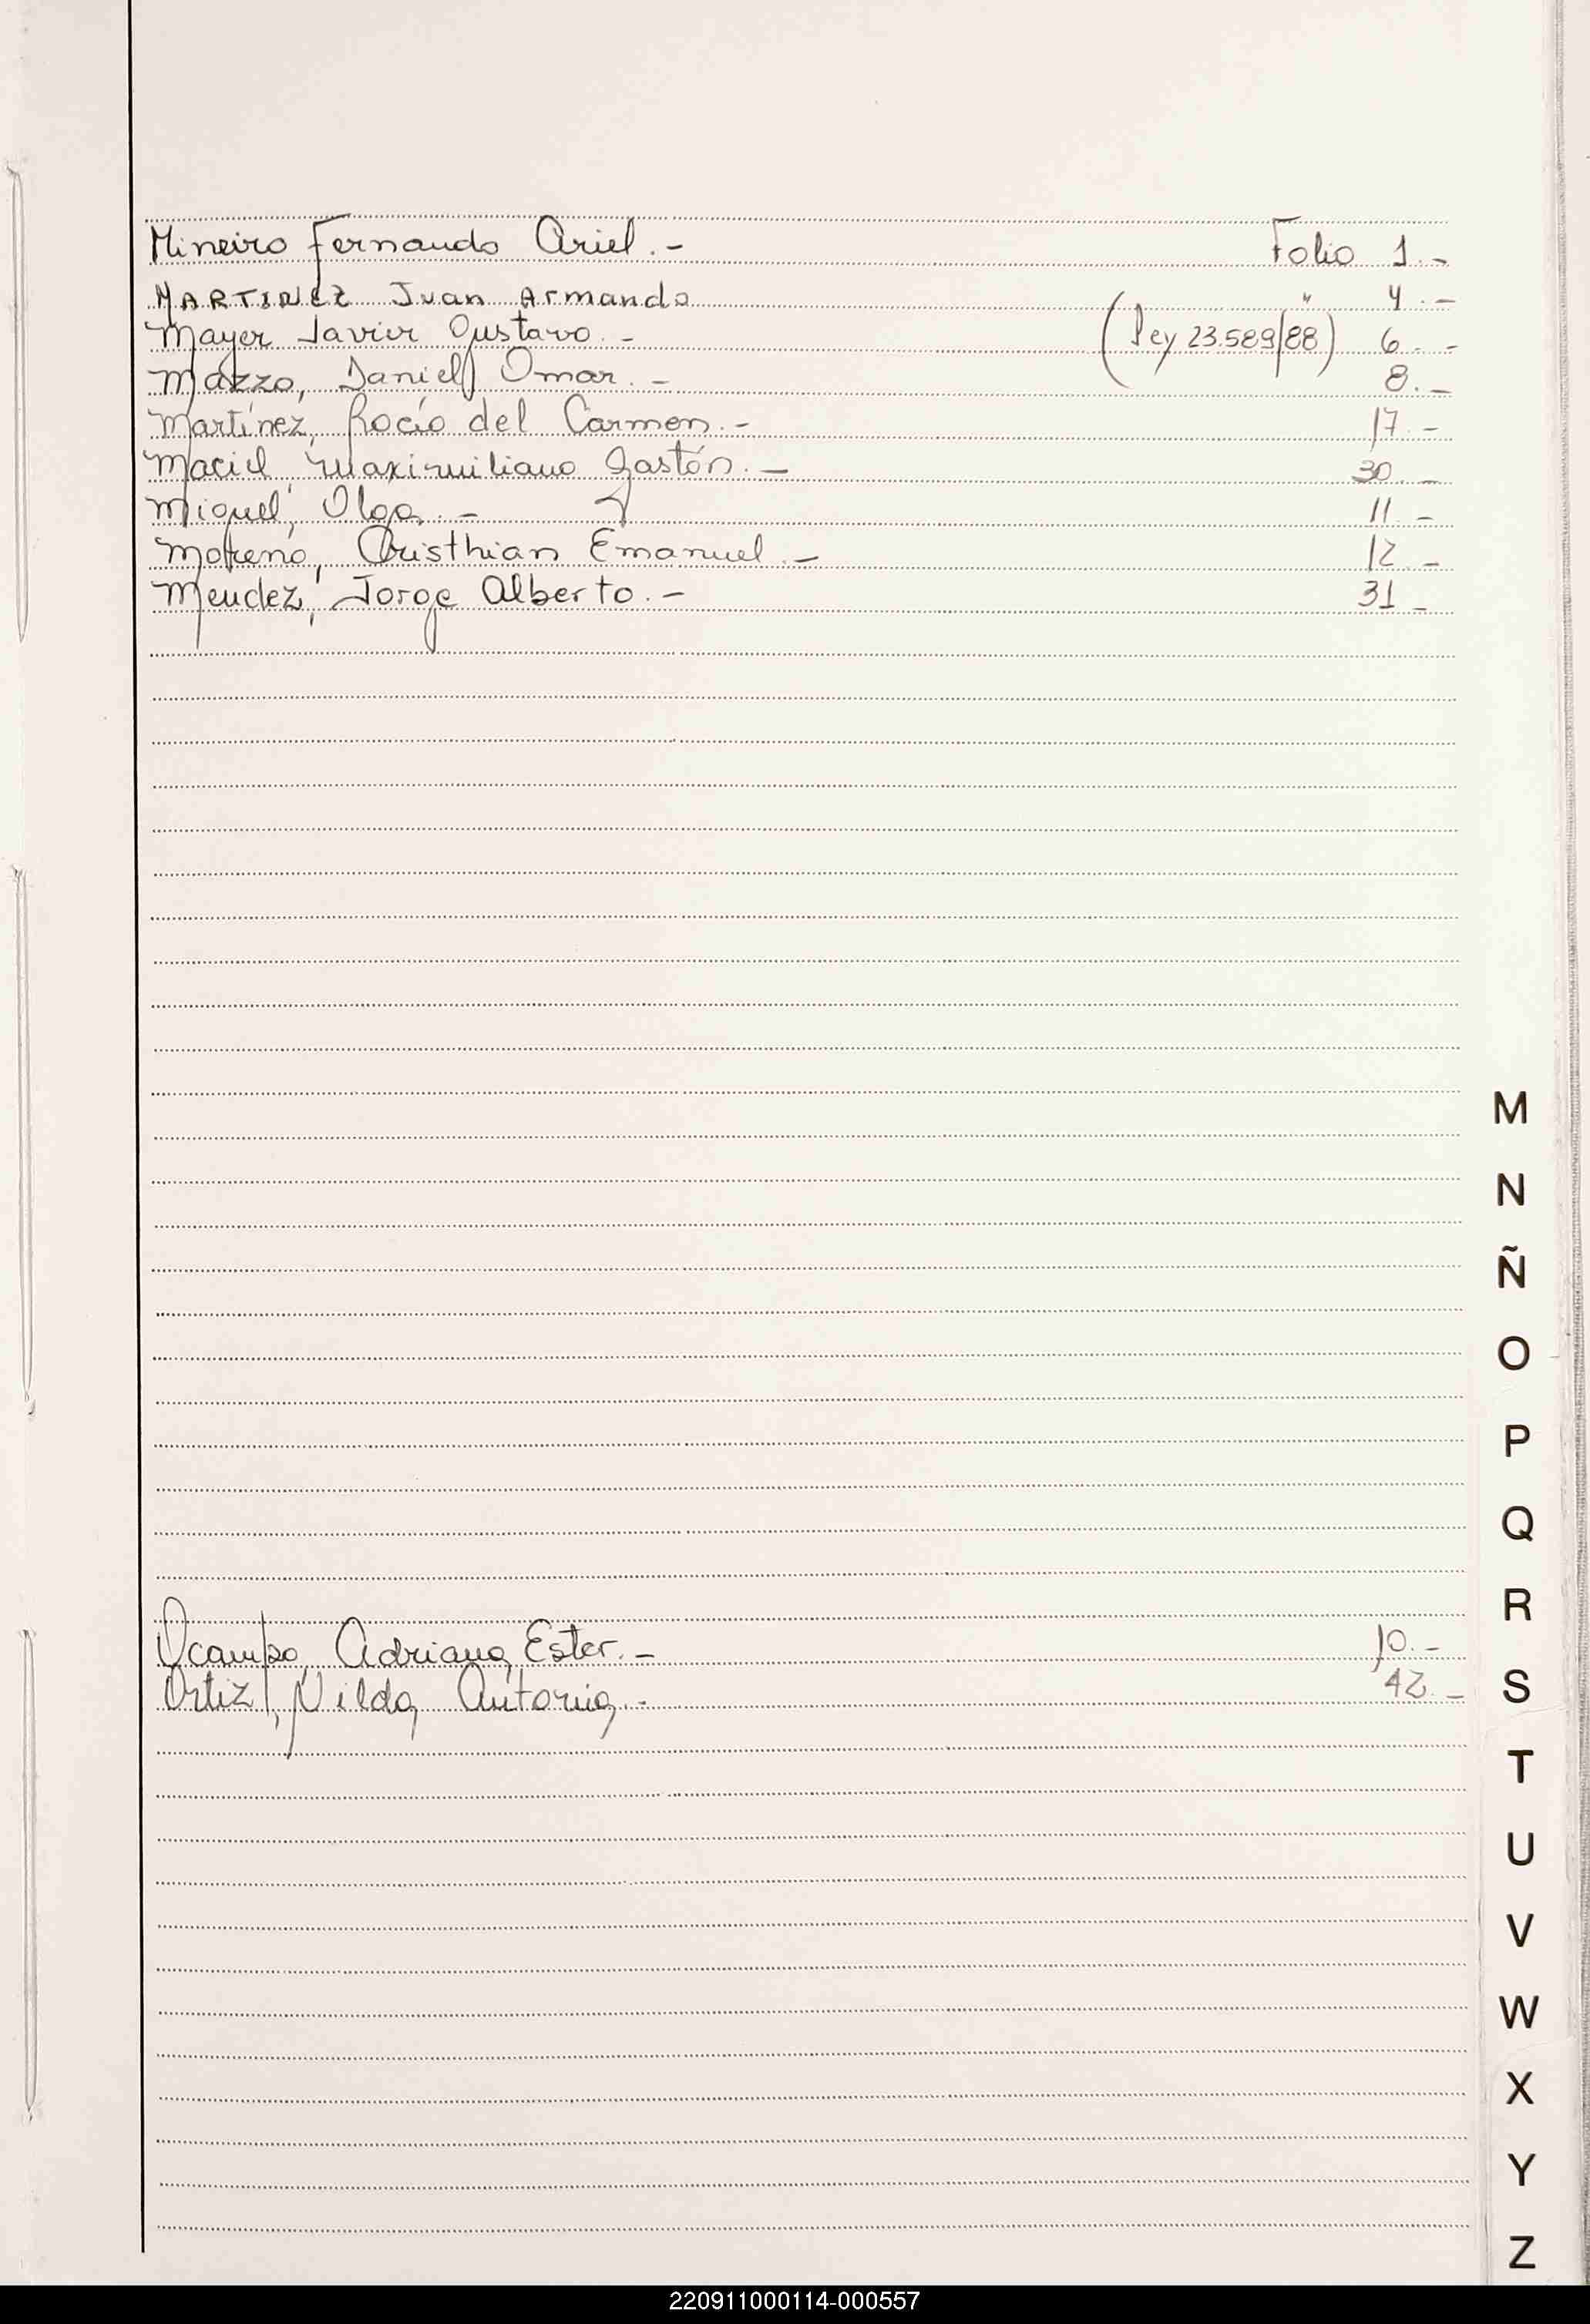 Mineiro Fernando Ariel.- Folio 1.-
MARTINEZ Juan Armando " 4.-
Mayer Javier Gustavo.- (Ley 23.589/88) 6.-
Mazzo, Daniel Omar.- 8.-
Martínez, Rocío del Carmen.- 17.-
Maciel, Maximiliano Gastón.- 30.-
Miquel, Olga.- 11.-
Moreno, Cristhian Emanuel.- 12.-
Mendez, Jorge Alberto.- 31-
M
N
Ñ
O
P
Q
R
Ocampo, Adriana Ester.- 10.-
Ortiz, Nilda Antonia.- 42.-
S
T
U
V
W
X
Y
Z
220911000114-000557